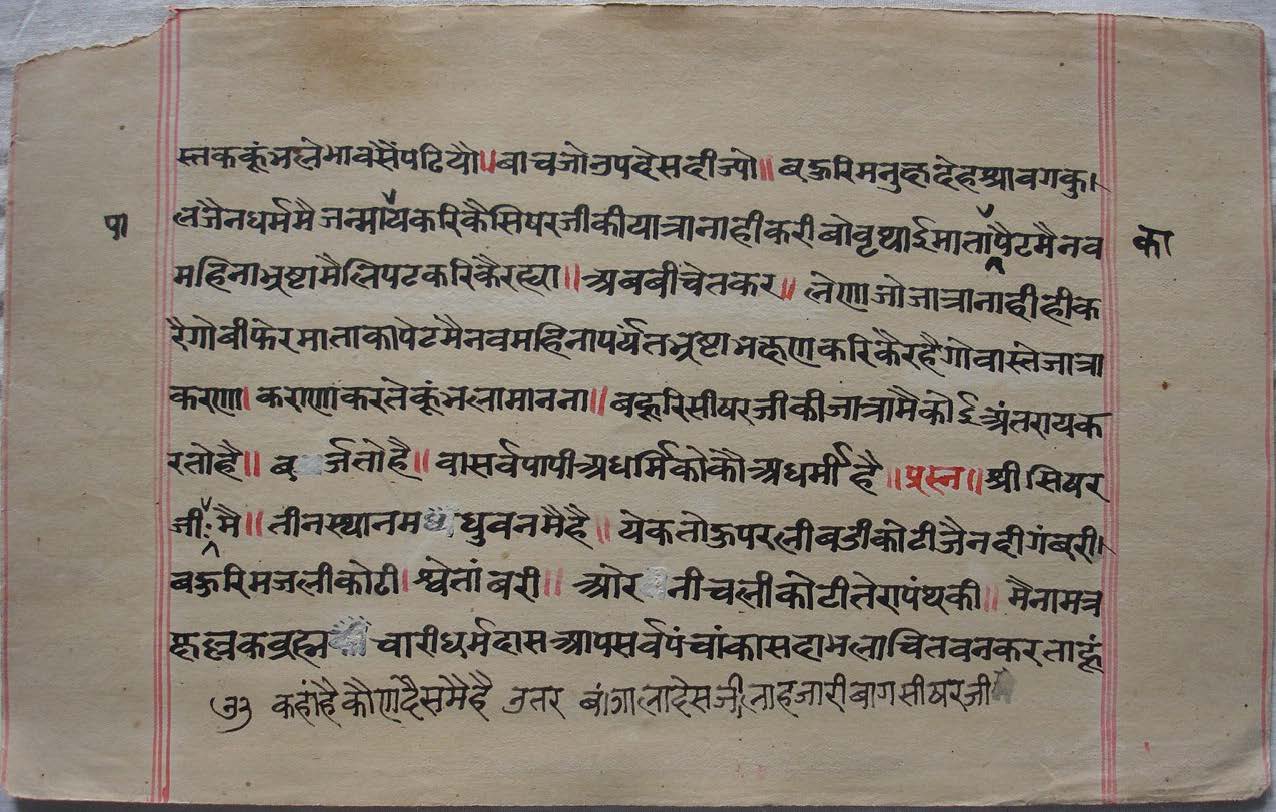 स्तककूंभलेभावसैंपढियौ॥बाचजोउपदेसदीज्यो॥बहुरिमनुक्षदेहश्रावगकु।
पा
लजैनधर्ममैजन्मायकरिकैसिषरजीकीयात्रानाहीकरीवोवृथाईमातापैटमैनव
का
महिनाभ्रष्टामैलिपटकरिकैरह्या॥अबबीचेतकर॥लेणाजोजात्रानाहीहीक
रैगोबीफेरमाताकापेटमैनवमहिनापर्यंतभ्रष्टाभक्षणकरिकैरहैगोवास्तेजात्रा
करणा।कराणाकरतेकूंभलामानना॥बहुरिसीषरजीकीजात्रामैकोईअंतरायक
रतोहै॥ब र्जतोहै॥वासर्वपापीअधर्मिकोकौअधर्मीहै॥प्रस्न॥श्रीसिषर
जी:मै॥तीनस्थानम धुवनमैहै॥येकतोऊपरलीबडीकोटीजैनदीगंबरी।
बहुरिमजलीकोटी।श्वेतांबरी॥ओर नीचलीकोटीतेरापंथकी॥मैनामत्र
क्षुल्लकब्रह्म चारीधर्मदासआपसर्वपंचांकासदाभलाचितवनकरताहूं
७३ कहांहैकौणदेसमैहै उतर बांगालादेसजीलाहजारीबागसीषरजी